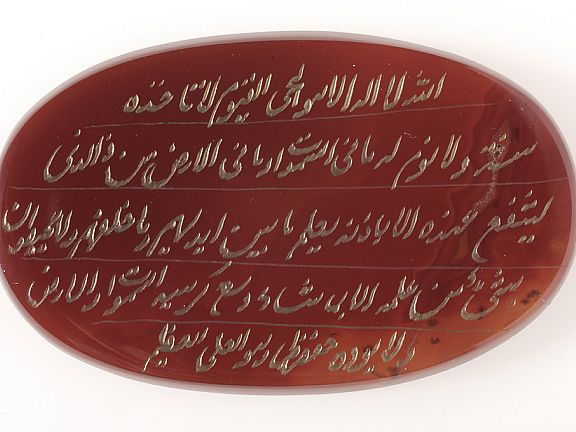 الله لا اله الا هو الحی القیوم لا تاخذه
سنته ولا نوم له مافی السموات ومافی الارض من ذالذی
یشفع عنده الا باذنه یعلم ما بین ایدیهم وما خلفهم ولا یحیطون
بشئ من علمه الا بما شاء وسع کرسیه السموات والارض
ولا یوده حفظهما وهو العلی العظیم